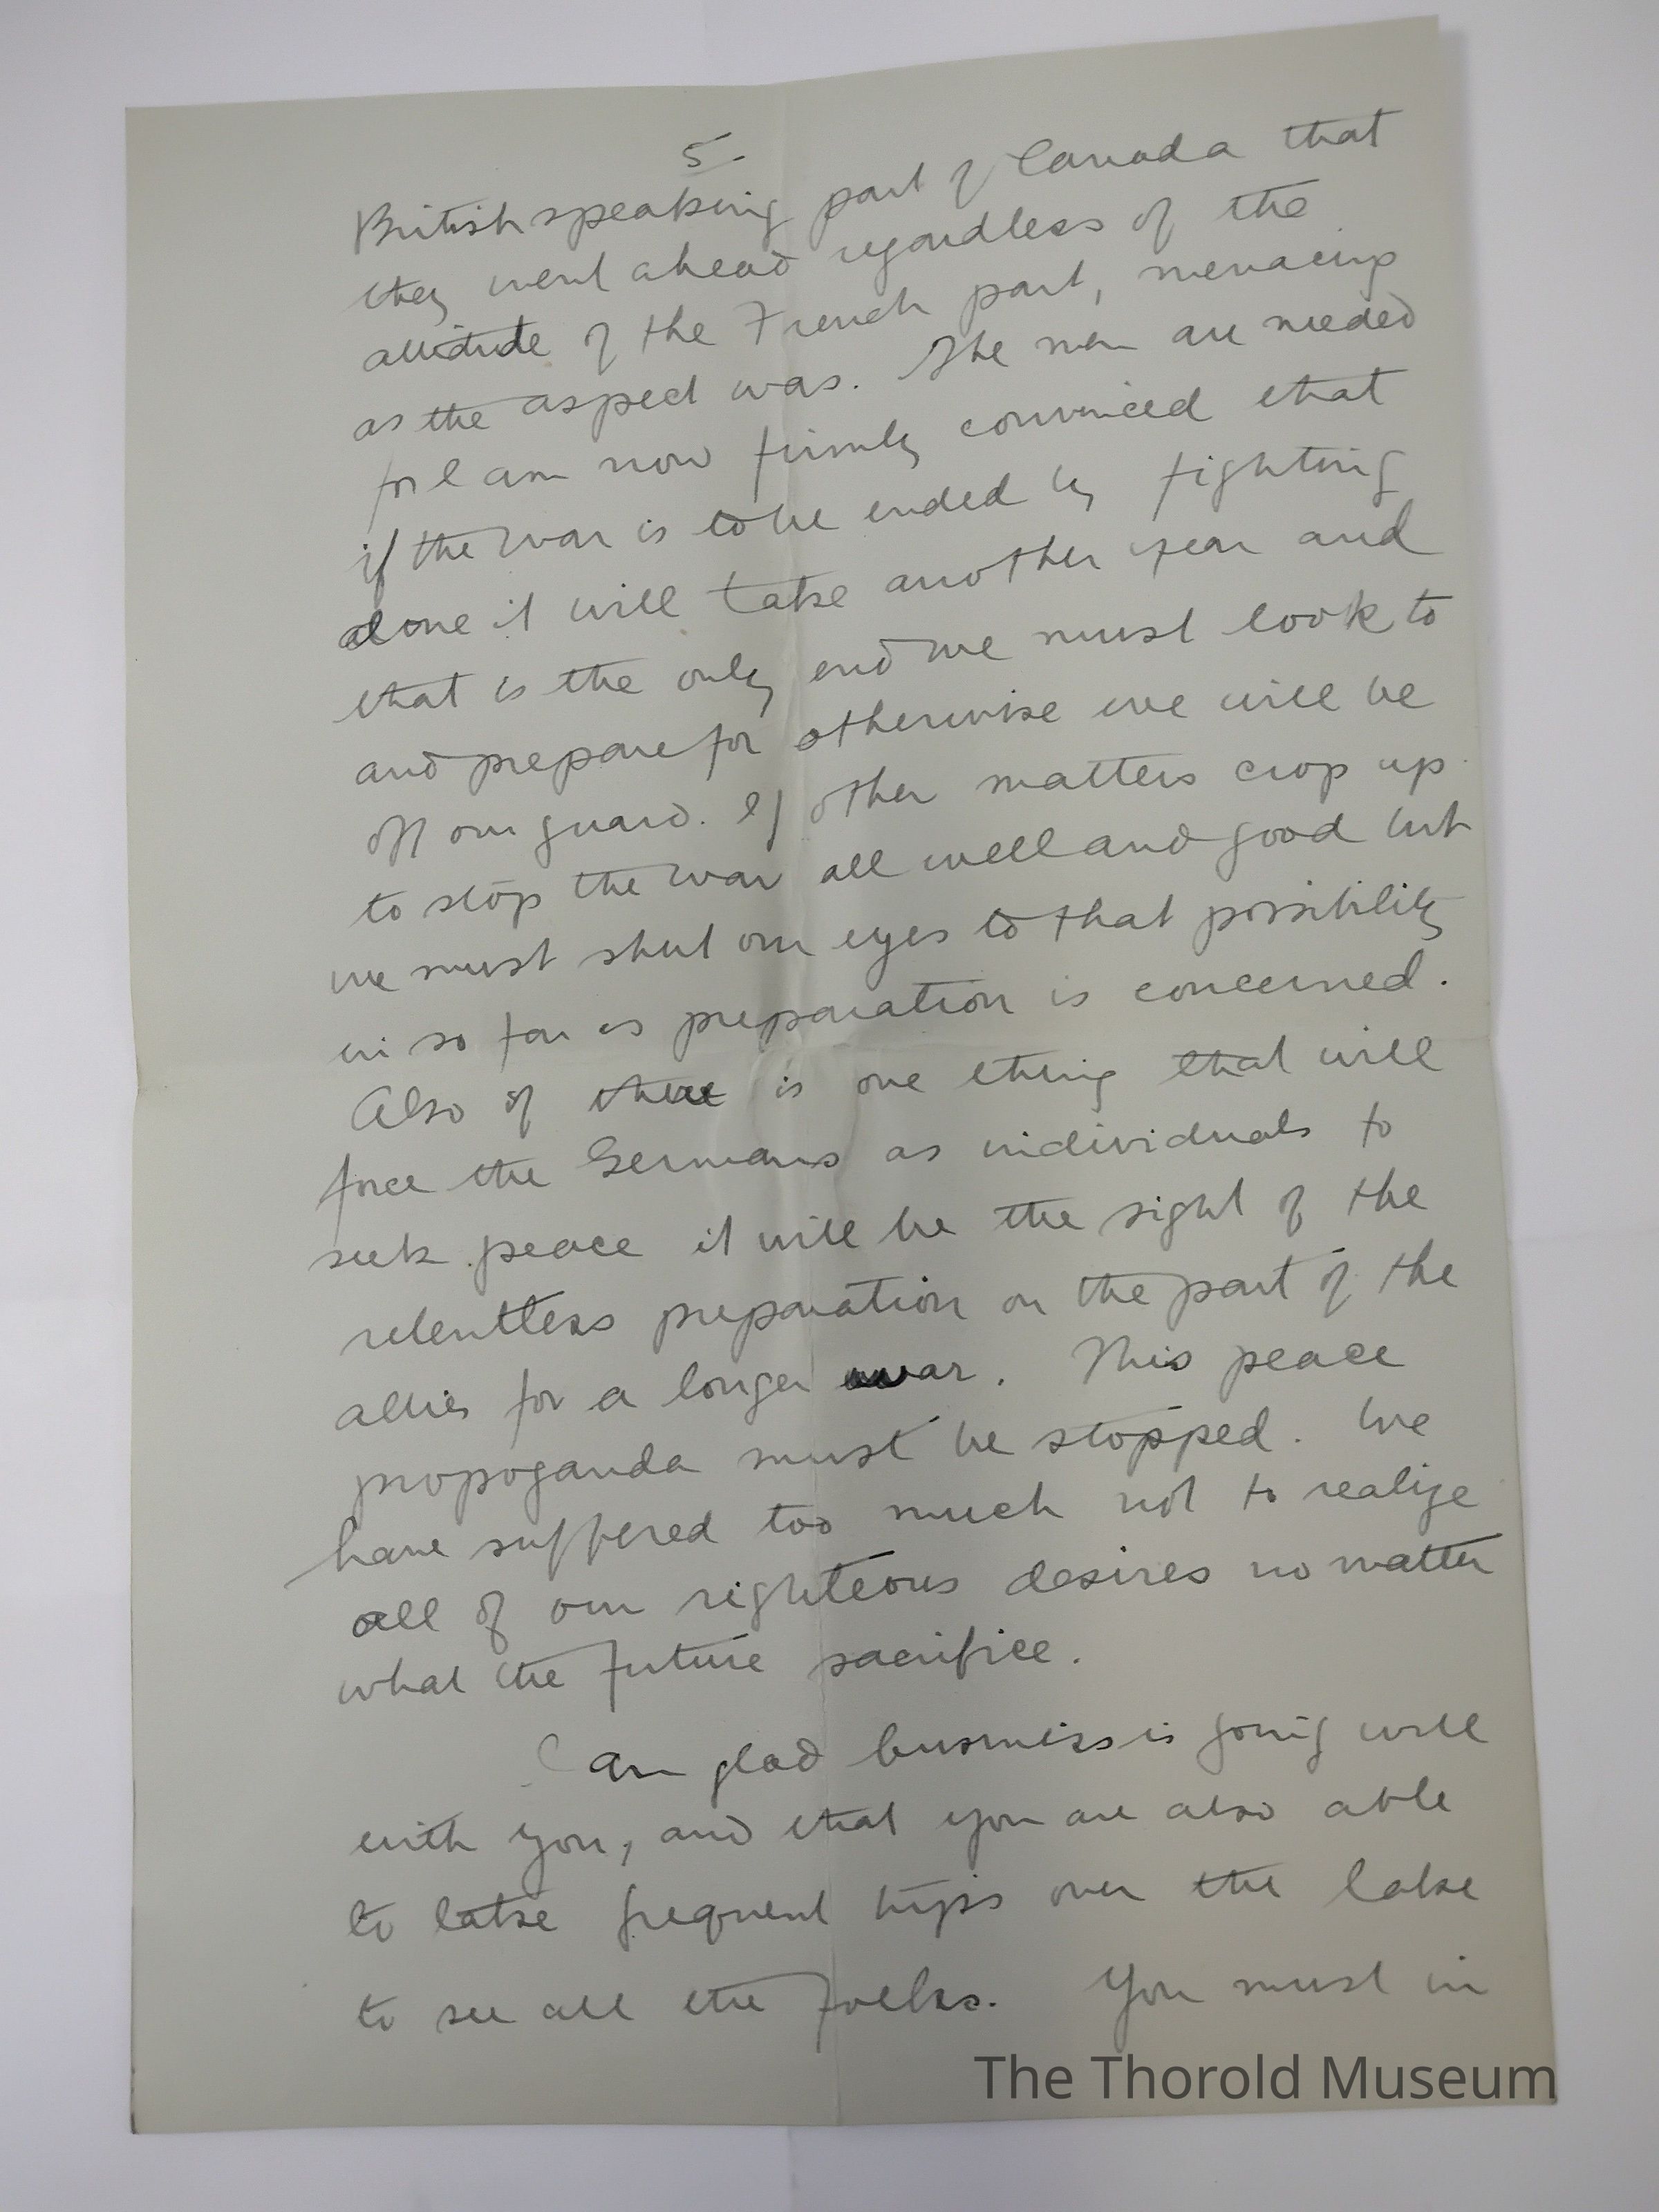 5.
British speaking part of Canada that
they went ahead regardless of the
attitude of the French part, menacing
as the aspect was. The men are needed
for I am now firmly convinced that
if the war is to be ended by fighting
alone it will take another year and
that is the only end we must look to
and prepare for otherwise we will be
off our guard. If other matters crop up
to stop the war all well and good but
we must shut our eyes to that possibility
in so far as preparation is concerned.
Also if there is one thing that will
force the Germans as individuals to
seek peace it will be the sight of the
relentless preparation on the part of the
allies for a longer war. This peace
propoganda must be stopped. We
have suffered too much not to realize
all of our righteous desires no matter
what the future sacrifice.
I am glad business is going well
with you, and that you are also able
to take frequent trips over the lake
to see all the folks. You must in
The Thorold Museum